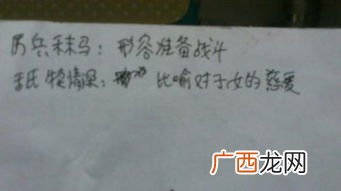 厉兵秣马：形容准备战斗
舐犊情深：比喻对子女的慈爱
广西龙网